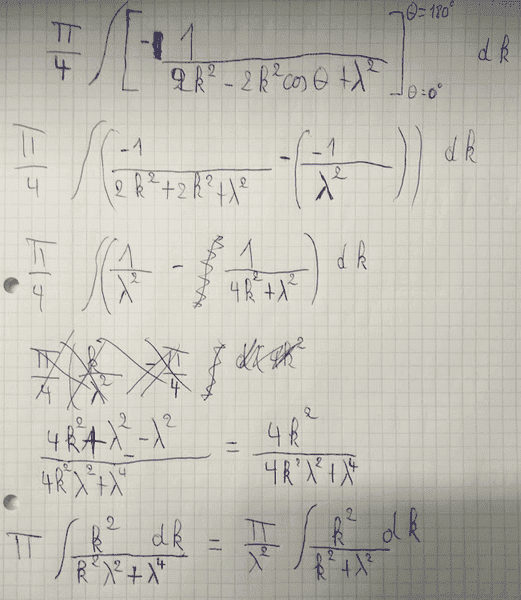 π/4 ∫ [ -1/(2k² - 2k² cos θ + λ²) ]θ=180° θ=0° dk
π/4 ∫ ( -1/(2k² + 2k² + λ²) - ( -1/λ² ) ) dk
π/4 ∫ ( 1/λ² - 1/(4k² + λ²) ) dk
(4k² + λ² - λ²)/(4k²λ² + λ⁴) = 4k²/(4k²λ² + λ⁴)
π ∫ k² dk/(k²λ² + λ⁴) = π/λ² ∫ k²/(k² + λ²) dk